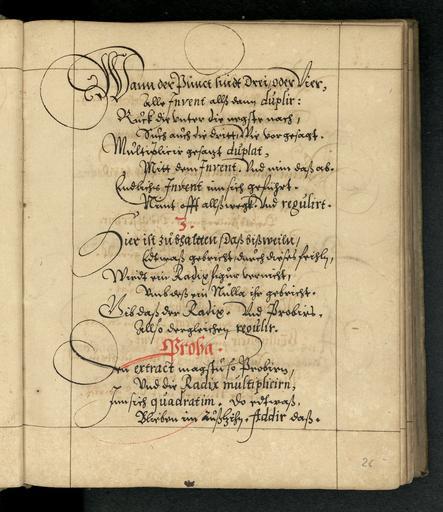 Wann der Punct sindt Drei, oder Vier,
Alle Invent allß dann duplir:
Rück die unter die negste nach,
Such auch die dritt, Wie vorgesagt.
Multiplicir gesagt duplat,
Mitt dem Invent. Und nim daß ab.
Endtlichs Invent inn sich geführt.
Nimt offt allß wegk. Und regulirt.
3.
Hier ist zu bhaltten, Daß bißweiln,
Edtwaß gebricht, durch dieses
Wirdt ein Radix figur vernicht,
Umb deß ein Nulla ihr gebricht.
Gib daß der Radix. Und Probirs.
Also dergleichen regulir.
Proba.
Den extract magstu so Probirn,
Und die Radix multiplicirn,
Inn sich quadratim. Do edtwaß,
Blieben im Außzihn. Addir daß.
26